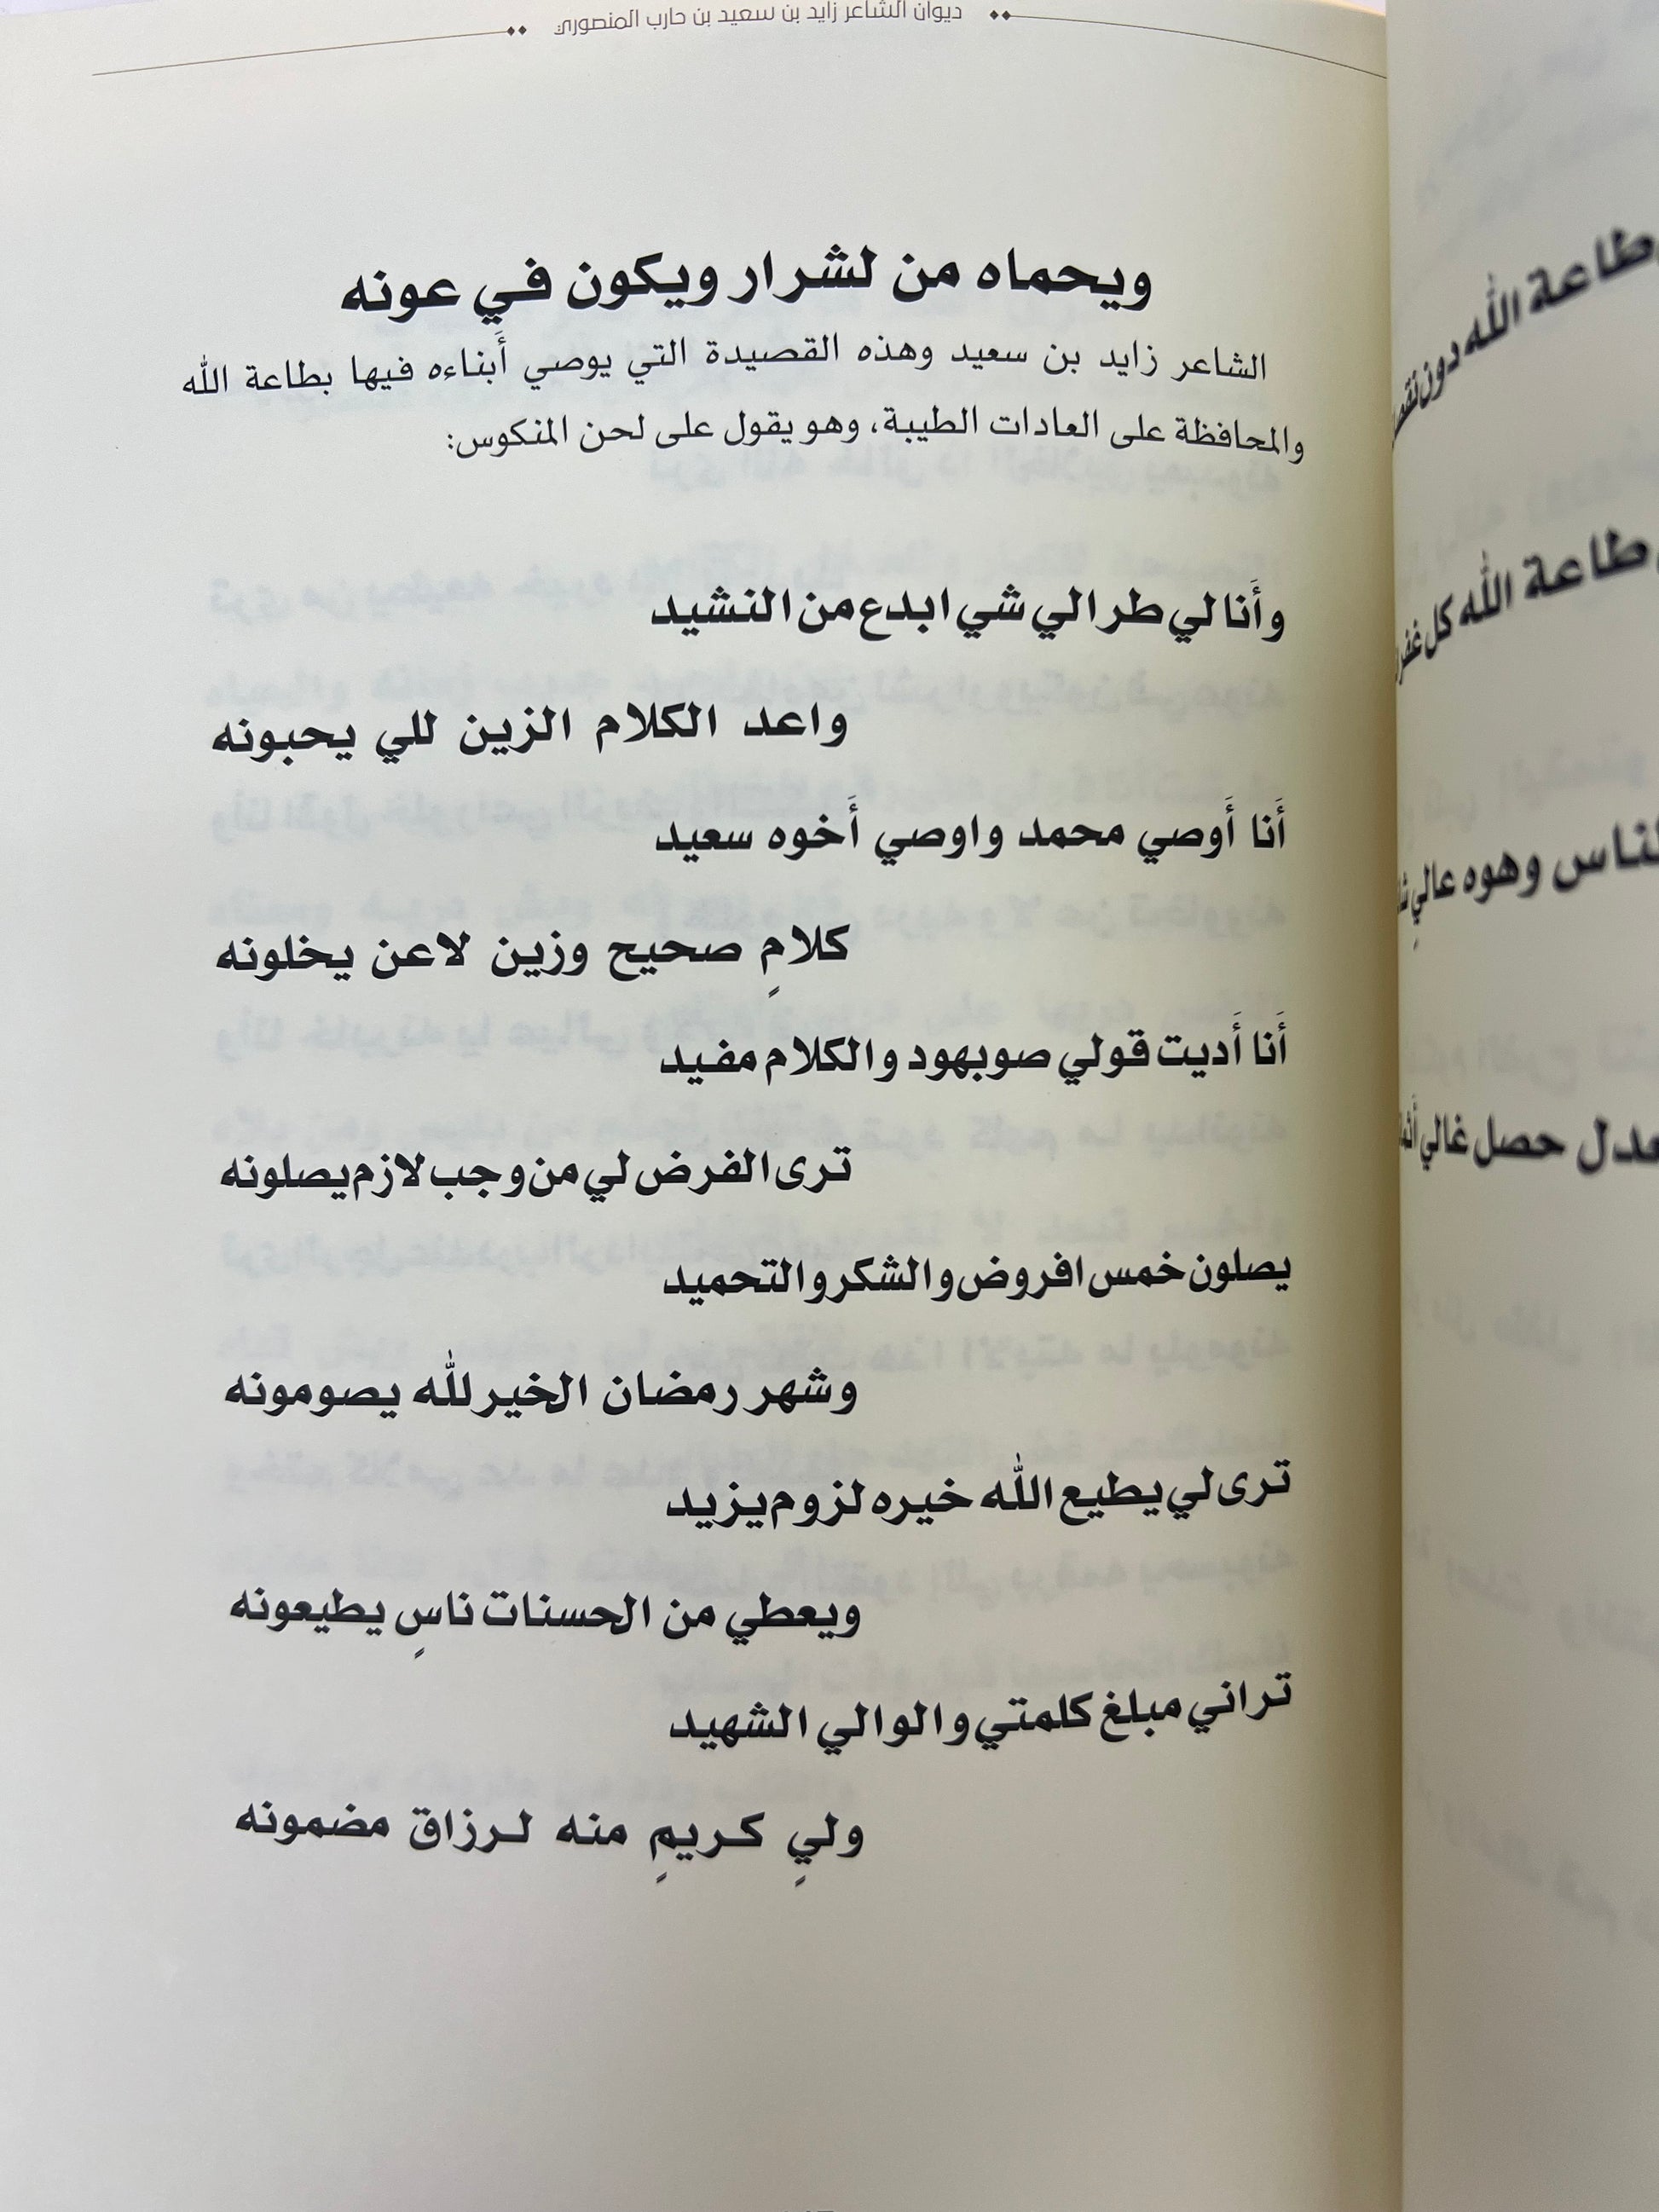 ديوان الشاعر زايد بن سعيد بن حارب المنصوري
ويحماه من لشرار ويكون في عونه
الشاعر زايد بن سعيد وهذه القصيدة التي يوصي أَبناءه فيها بطاعة الله
والمحافظة على العادات الطيبة، وهو يقول على لحن المنكوس:
وأَنا لي طرالي شي ابدع من النشيد
واعد الكلام الزين للي يحبونه
أَنا أَوصي محمد واوصي أَخوه سعيد
كلامٍ صحيح وزين لاعن يخلونه
أَنا أَديت قولي صوبهود والكلام مفيد
ترى الفرض لي من وجب لازم يصلونه
يصلون خمس افروض والشكر والتحميد
وشهر رمضان الخير لله يصومونه
ترى لي يطيع الله خيره لزوم يزيد
ويعطي من الحسنات ناسٍ يطيعونه
تراني مبلغ كلمتي والوالي الشهيد
وليٍ كريمٍ منه لرزاق مضمونه
طاعة الله دون
طاعة الله كل
وهوه عالي
حصل غالي